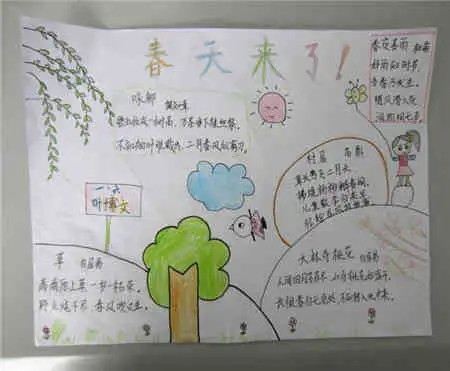 春天来了!
咏柳 贺知章
碧玉妆成一树高,万条垂下绿丝绦。
不知细叶谁裁出,二月春风似剪刀。
春夜喜雨 杜甫
好雨知时节,
当春乃发生。
随风潜入夜,
润物细无声。
村居 高鼎
草长莺飞二月天
拂堤杨柳醉春烟
儿童散学归来早
一.六
叶博文
草 白居易
离离原上草 一岁一枯荣,
野火烧不尽 春风吹又生。
大林寺桃花 白居易
人间四月芳菲尽,山寺桃花始盛开。
长恨春归无觅处,不知转入此中来。